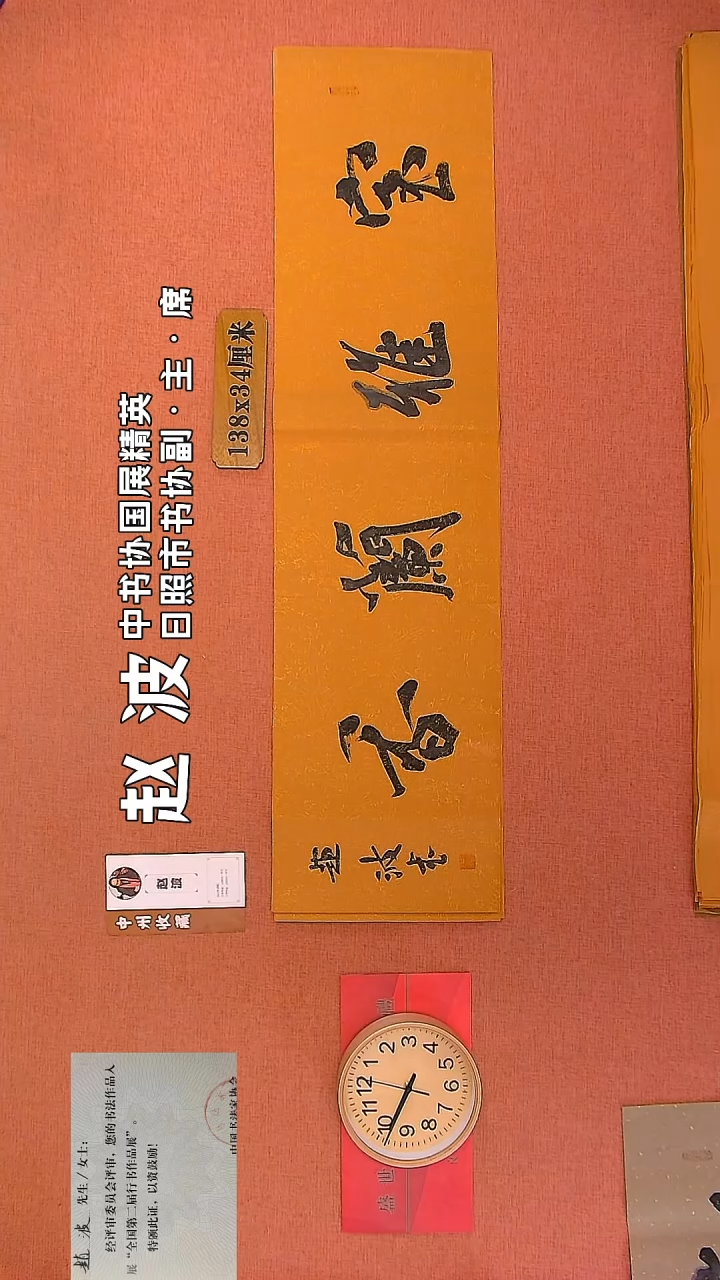 赵波
中书协国展精英
日照市书协副·主·席
138x34厘米
赵波
中州收藏
室雅蘭香
趙波書
趙波 先生/女士：
经评审委员会评审，您的书法作品入
展“全国第二届行书作品展”。
特颁此证，以资鼓励！
中国书法家协会
盛世
12 1 2 3 4 5 6 7 8 9 10 11